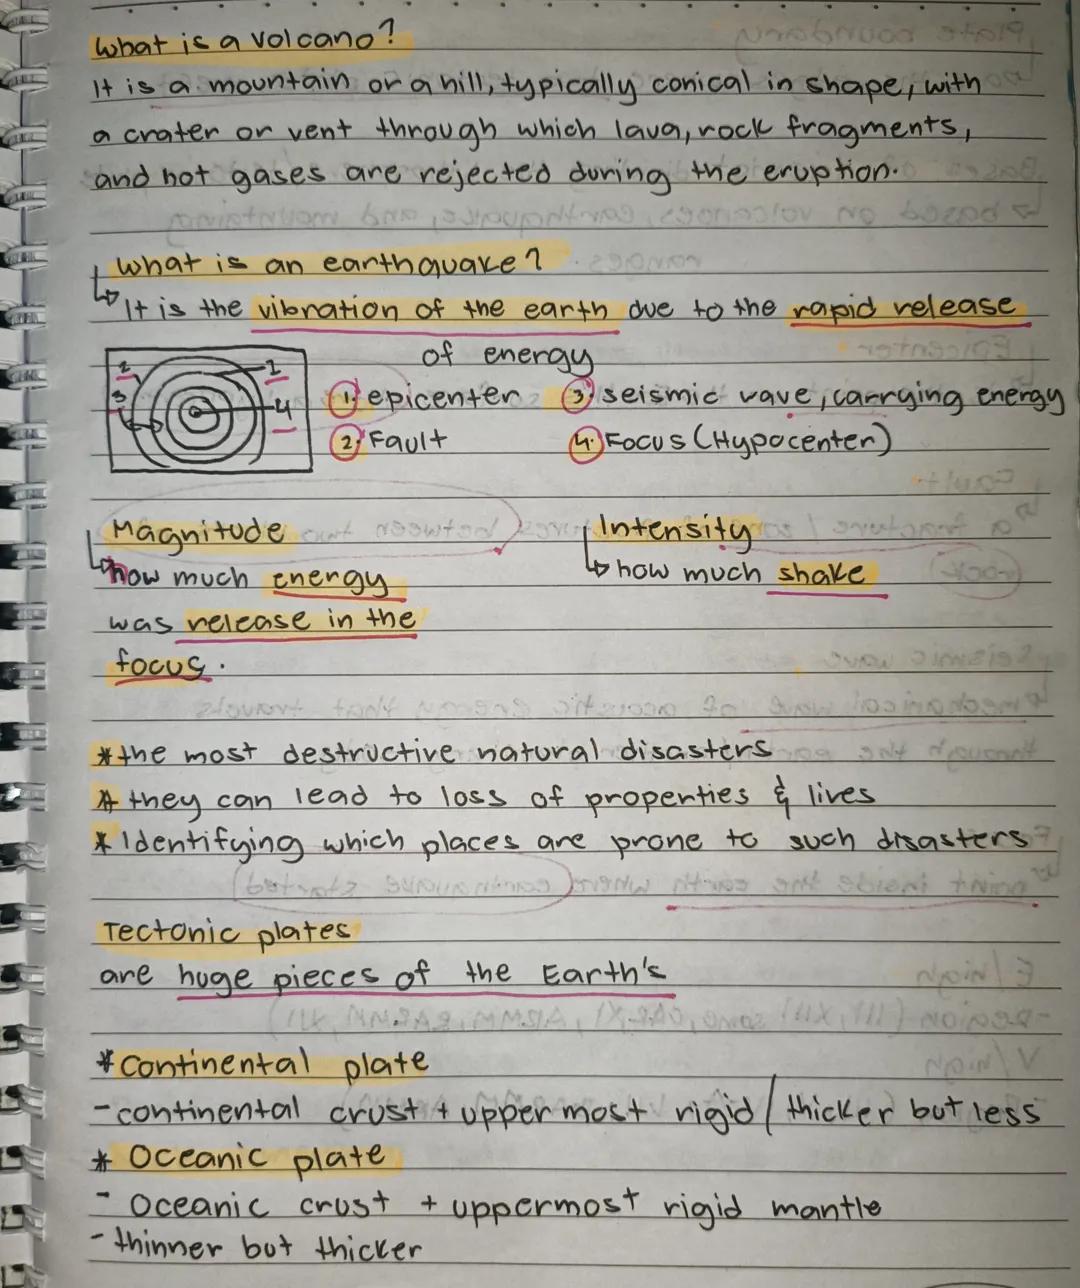 What is a volcano?
It is a mountain or a hill, typically conical in shape, with
a crater or vent through which lava, rock fragments,
and hot gases are rejected during the eruption.
What is an earthquake?
It is the vibration of the earth due to the rapid release
of energy
2 1
3 4
1. epicenter 3. seismic wave, carrying energy
2. Fault 4. Focus (Hypocenter)
Magnitude Intensity
how much energy how much shake
was release in the
focus.
* the most destructive natural disasters
* they can lead to loss of properties & lives
* Identifying which places are prone to such disasters
Tectonic plates
are huge pieces of the Earth's
* Continental plate
- continental crust + upper most rigid / thicker but less
* Oceanic plate
- Oceanic crust + uppermost rigid mantle
- thinner but thicker